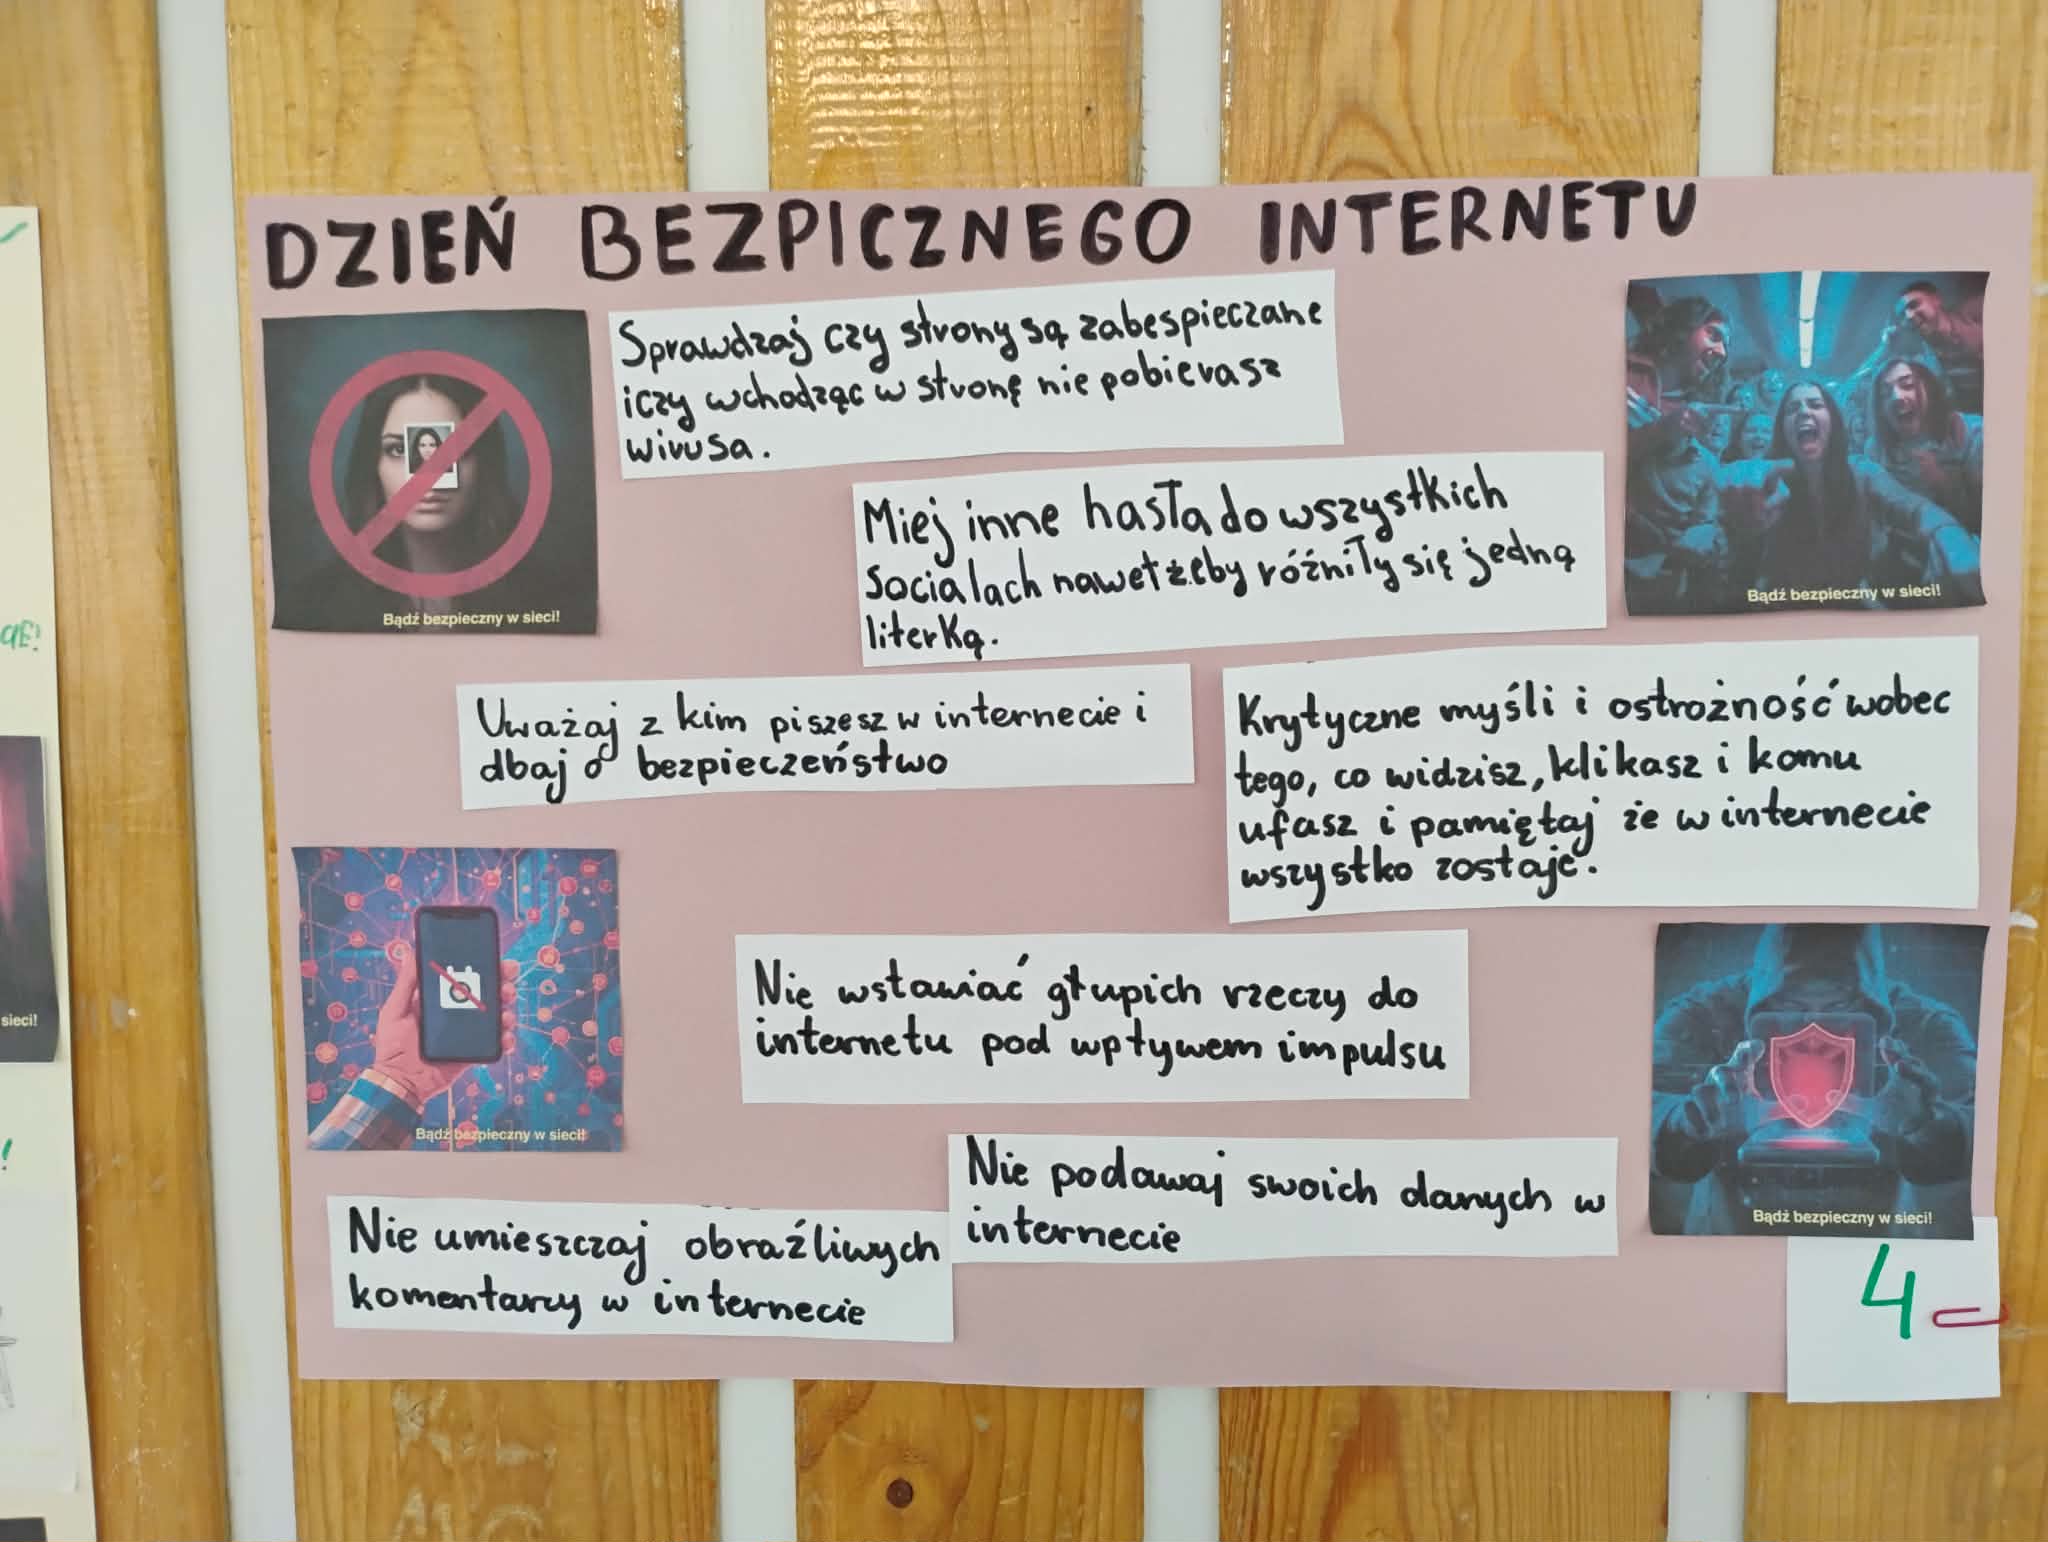 DZIEŃ BEZPICZNEGO INTERNETU
Sprawdzaj czy strony są zabespieczane
i czy wchodząc w stronę nie pobierasz
wirusa.
Miej inne hasła do wszystkich
socialach nawet żeby różniły się jedną
literką.
Bądź bezpieczny w sieci!
Bądź bezpieczny w sieci!
Uważaj z kim piszesz w internecie i
dbaj o bezpieczeństwo
Krytyczne myśli i ostrożność wobec
tego, co widzisz, klikasz i komu
ufasz i pamiętaj że w internecie
wszystko zostaje.
Nie wstawiać głupich rzeczy do
internetu pod wpływem impulsu
Bądź bezpieczny w sieci!
Nie podawaj swoich danych w
internecie
Bądź bezpieczny w sieci!
Nie umieszczaj obraźliwych
komentarzy w internecie
4
sieci!